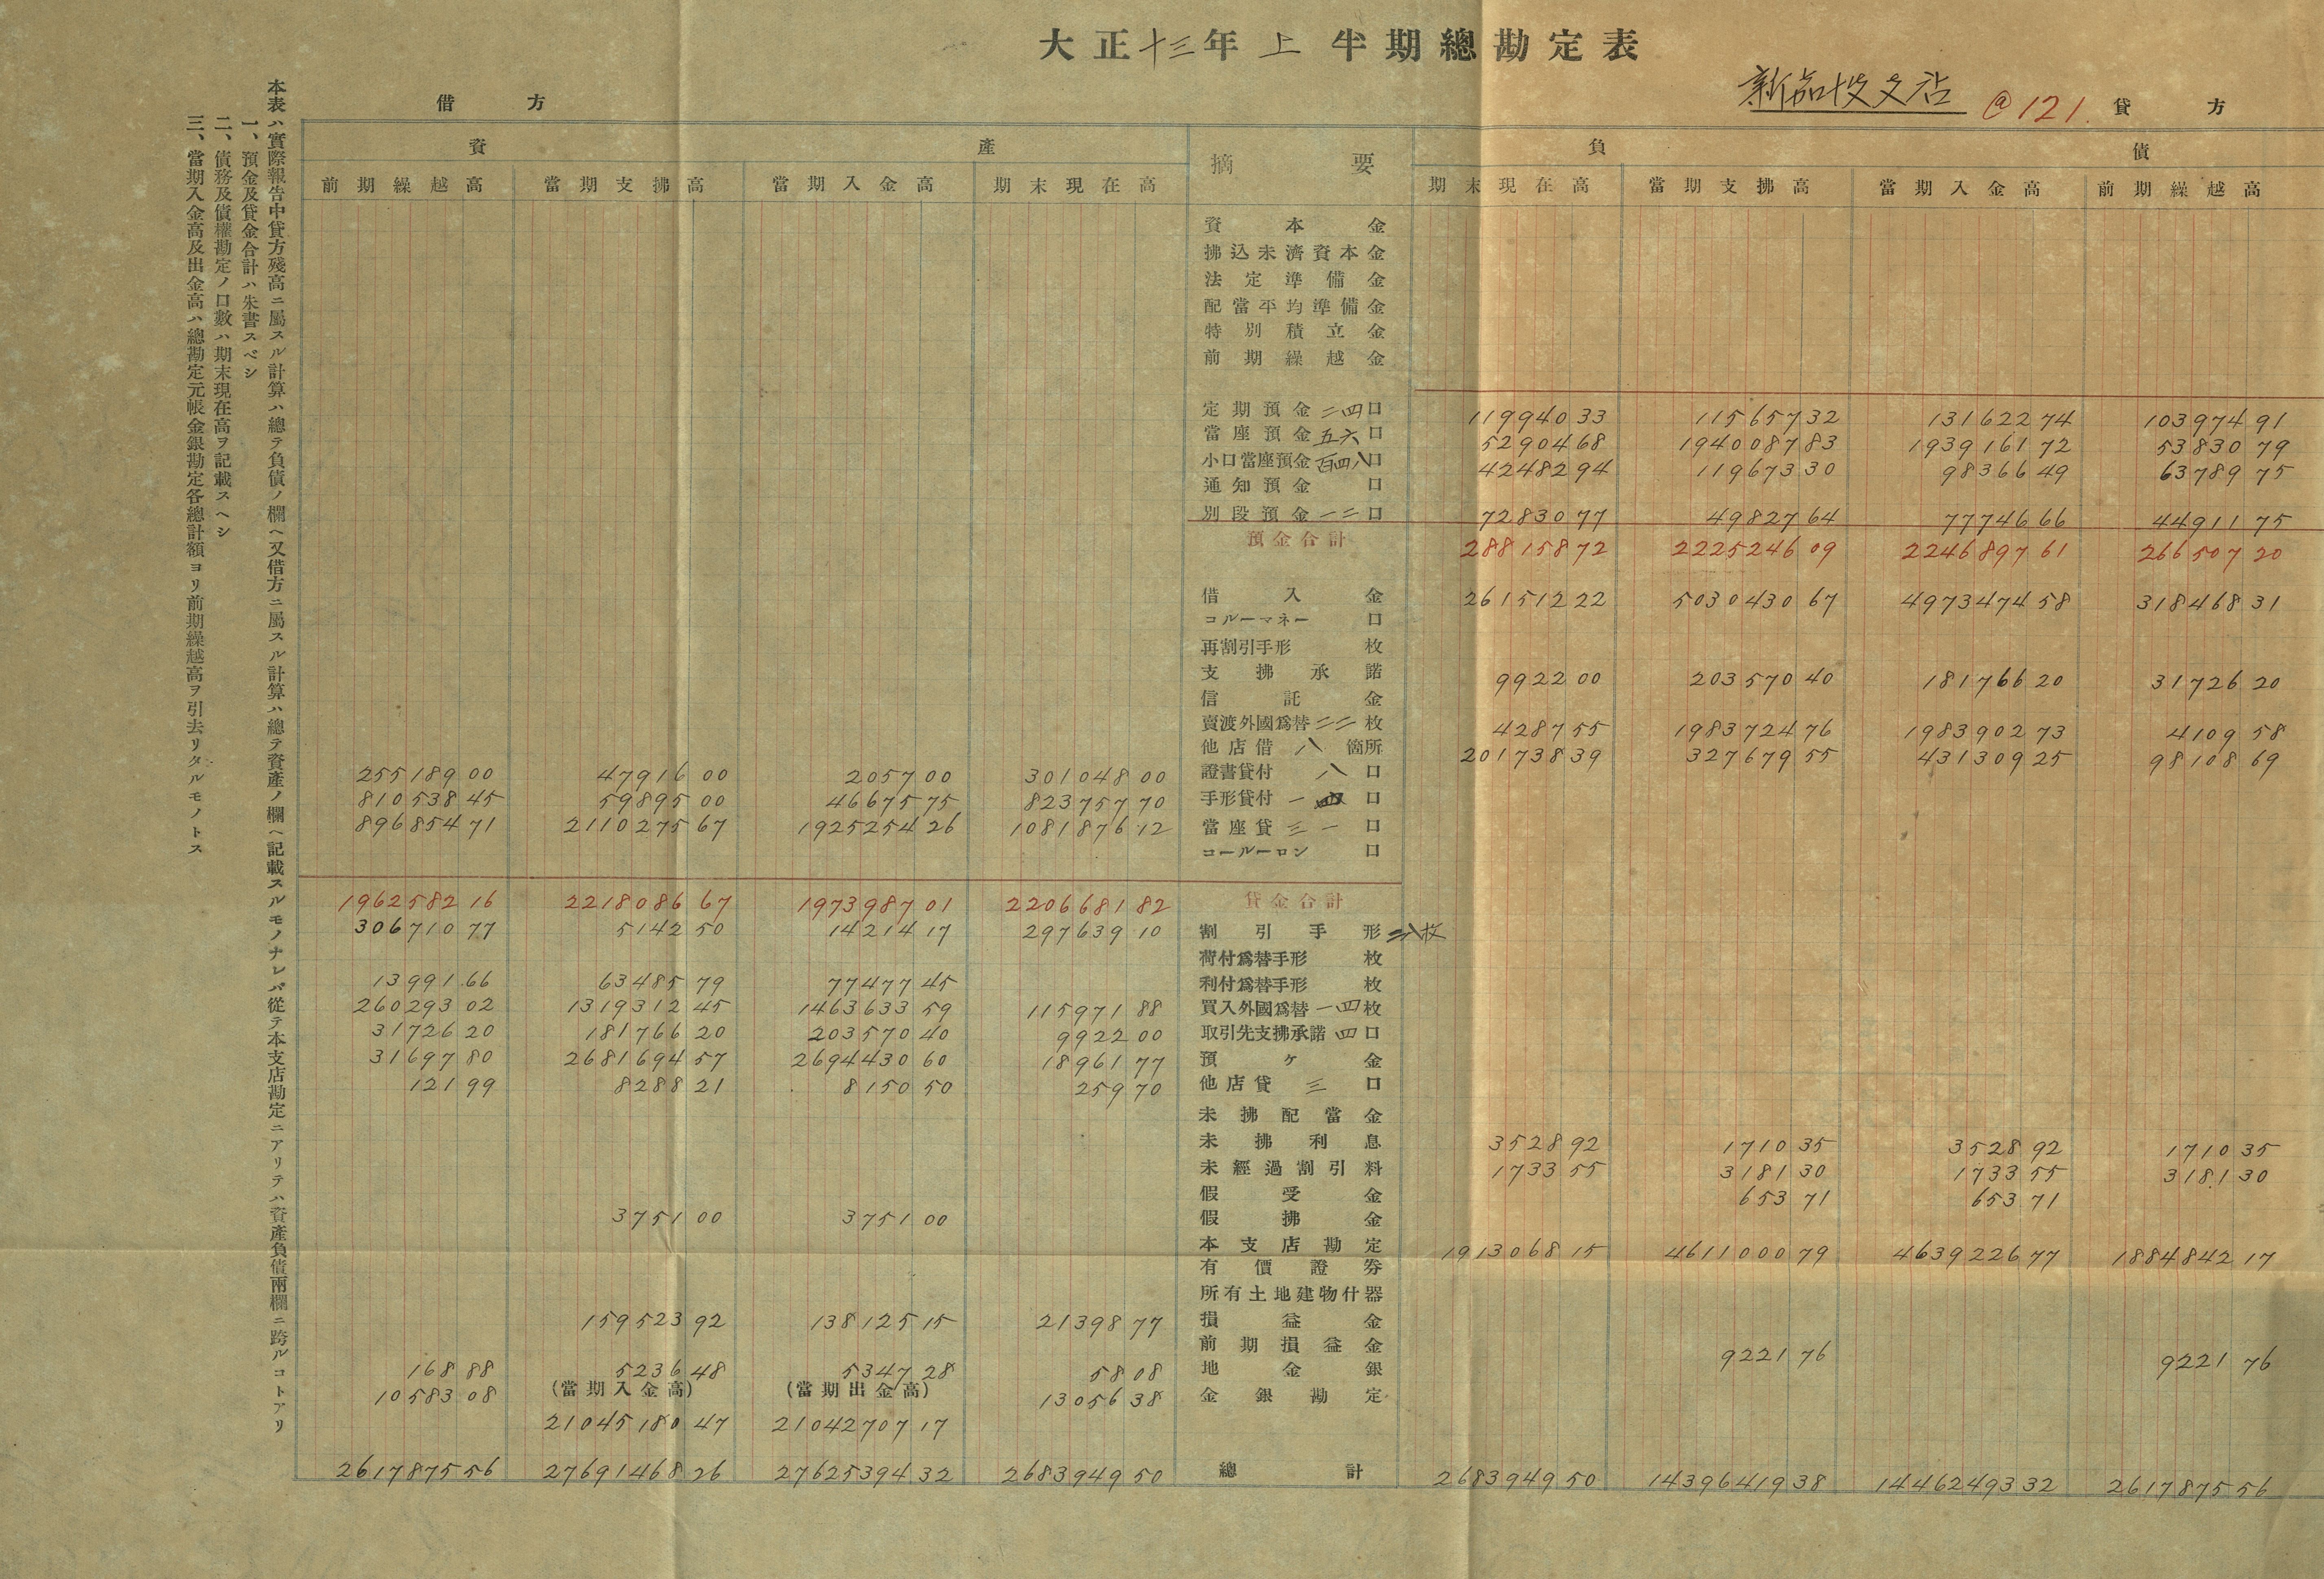 大正十三年上半期總勘定表
新嘉坡支店 @121.
借方 貸方
資產 摘要 負債
前期繰越高 當期支拂高 當期入金高 期末現在高 期末現在高 當期支拂高 當期入金高 前期繰越高
資本金
拂込未濟資本金
法定準備金
配當平均準備金
特別積立金
前期繰越金
定期預金 二四口 119940 33 115657 32 131622 74 103974 91
當座預金 五六口 52904 68 1940087 83 1939161 72 53830 79
小口當座預金 百四八口 42482 94 119673 30 98366 49 63789 75
通知預金 口
別段預金 一二口 72830 77 49827 64 77746 66 44911 75
預金合計 288158 72 2225246 09 2246897 61 266507 20
借入金 261512 22 5030430 67 4973474 58 318468 31
コルーマネー 口
再割引手形 枚
支拂承諾 9922 00 203570 40 181766 20 31726 20
信託金
賣渡外國爲替 二二枚 4287 55 1983724 76 1983902 73 4109 58
他店借 八箇所 201738 39 327679 55 431309 25 98108 69
255189 00 47916 00 2057 00 301048 00 證書貸付 八口
810538 45 59895 00 46675 75 823757 70 手形貸付 一四口
896854 71 2110275 67 1925254 26 1081876 12 當座貸 三一口
コールーロン 口
1962582 16 2218086 67 1973987 01 2206681 82 貸金合計
306710 77 5142 50 14214 17 297639 10 割引手形 二八枚
荷付爲替手形 枚
13991 66 63485 79 77477 45 利付爲替手形 枚
260293 02 1319312 45 1463633 59 115971 88 買入外國爲替 一四枚
31726 20 181766 20 203570 40 9922 00 取引先支拂承諾 四口
31697 80 2681694 57 2694430 60 18961 77 預ケ金
121 99 8288 21 8150 50 259 70 他店貸 三口
未拂配當金
未拂利息 3528 92 1710 35 3528 92 1710 35
未經過割引料 1733 55 3181 30 1733 55 3181 30
假受金 653 71 653 71
3751 00 3751 00 假拂金
本支店勘定 1913068 15 4611000 79 4639226 77 1884842 17
有價證券
所有土地建物什器
159523 92 138125 15 21398 77 損益金
前期損益金 9221 76 9221 76
168 88 5236 48 5347 28 58 08 地金銀
10583 08 (當期入金高) (當期出金高) 13056 38 金銀勘定
21045180 47 21042707 17
2617875 56 27691468 26 27625394 32 2683949 50 總計 2683949 50 14396419 38 14462493 32 2617875 56
本表ハ實際報告中貸方殘高ニ屬スル計算ハ總テ負債ノ欄ヘ又借方ニ屬スル計算ハ總テ資產ノ欄ヘ記載スルモノナレバ從テ本支店勘定ニアリテハ資產負債兩欄ニ跨ルコトアリ
一、預金及貸金合計ハ朱書スベシ
二、債務及債權勘定ノ口數ハ期末現在高ヲ記載スヘシ
三、當期入金高及出金高ハ總勘定元帳金銀勘定各總計額ヨリ前期繰越高ヲ引去リタルモノトス